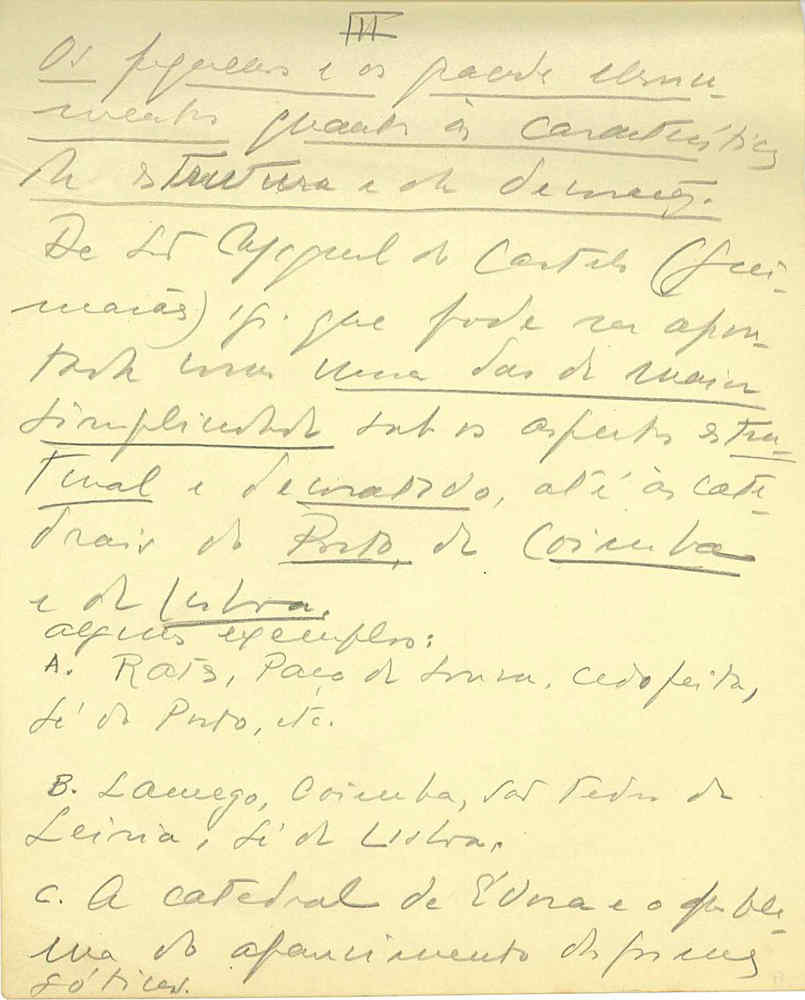 III
Os pequenos e os grandes monu-
mentos quanto às características
de estrutura e de decoração.
De São Miguel do Castelo (Gui-
marães) que pode ser apon-
tada como uma das de maior
simplicidade sob os aspectos estru-
tural e decorativo, até às cate-
drais do Porto, de Coimbra
e de Lisboa.
alguns exemplos:
A. Rates, Paço de Sousa, Cedofeita,
Sé do Porto, etc.
B. Lamego, Coimbra, São Pedro de
Leiria, Sé de Lisboa.
C. A catedral de Évora e o proble-
ma do aparecimento das formas
góticas.